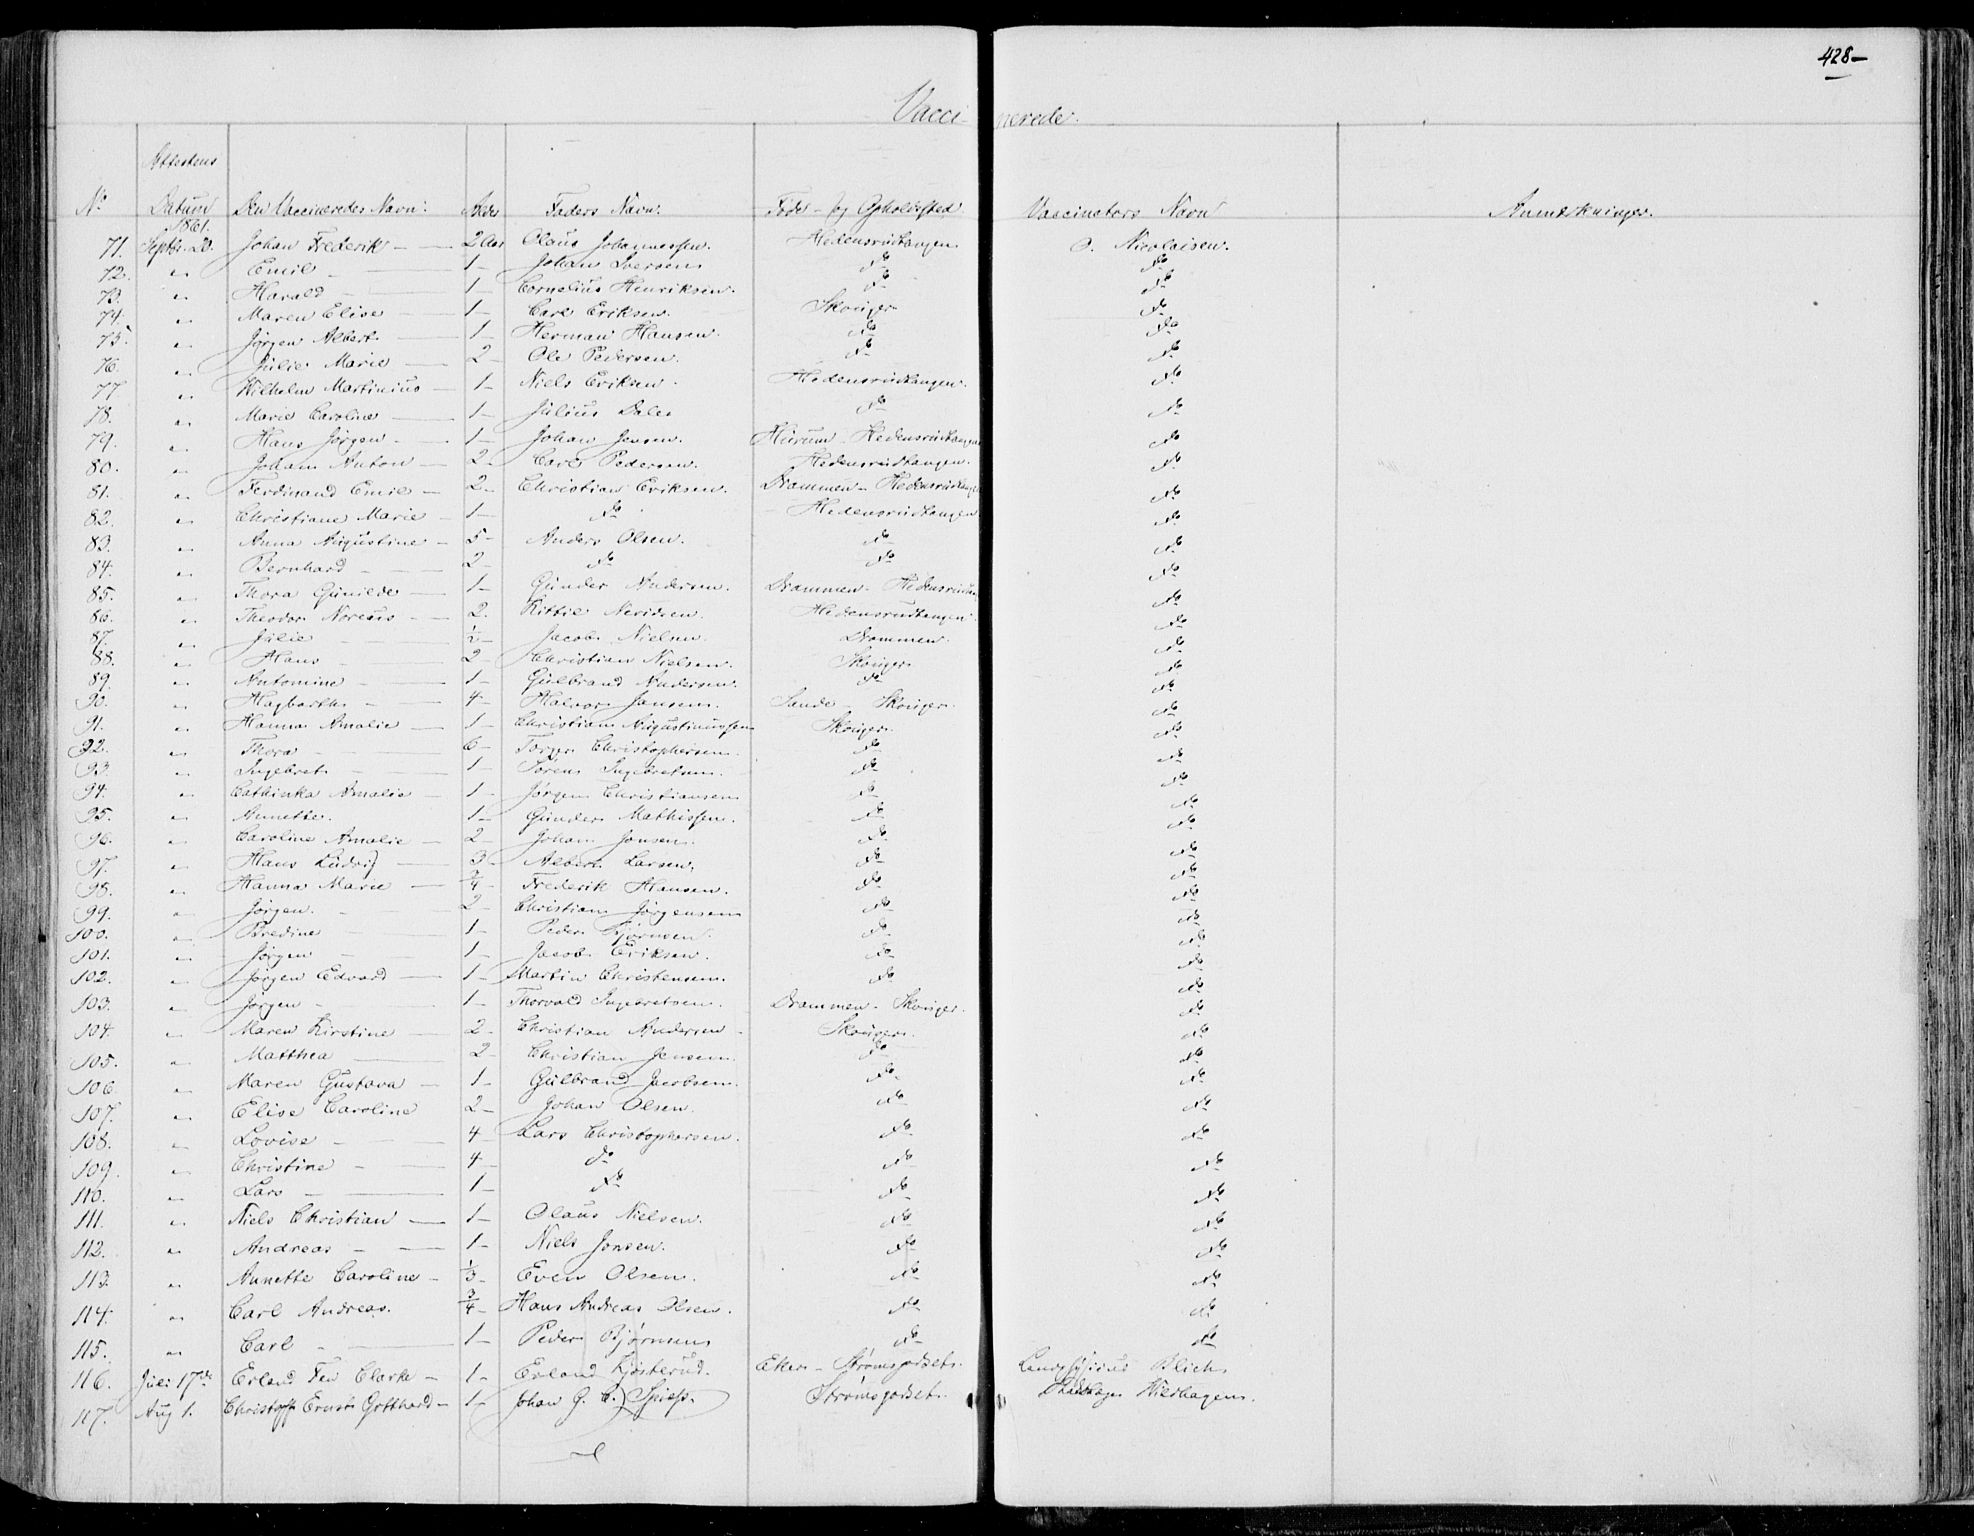 428-
Vaccinerede.
Attestens
No Datum Den Vaccineredes Navn. Alder Faders Navn. Føde- og Opholdssted. Vaccinators Navn Anmerkninger.
1861.
71. Septbr. 20. Johan Frederik - 2 Aar Olaus Johannessen. Hedensrudtangen O. Nicolaisen.
72. " Emil - 1- Johan Iversen do do
73. " Harald - 1- Cornelius Henriksen. do do
74. " Maren Elise - 1- Carl Eriksen. Skouger do
75. " Jørgen Albert 1- Herman Hansen. do do
76. " Julie Marie 2- Ole Pedersen. do do
77. " Wilhelm Martinius - 1- Niels Eriksen. Hedensrudtangen. do
78. " Marie Caroline 1- Julius Dale do do
79. " Hans Jørgen - 1- Johan Jensen. Hurum - Hedensrudtangen do
80. " Johan Anton - 2- Carl Pedersen. Hedensrudtangen. do
81. " Ferdinand Emil - 2- Christian Eriksen. Drammen - Hedensrudtangen do
82. " Christiane Marie - 1- do Hedensrudtangen do
83. " Anna Augustine - 5- Anders Olsen. do do
84. " Bernhard - 2- do do do
85. " Thora Gunilde - 1- Gunder Andersen. Drammen - do
86. " Theodor - 2. Kittil Hedensrudtangen do
87. " Julie - 1/2- Jacob Nielsen. Drammen. do
88. " Hans - 2- Christian Nielsen. Skouger do
89. " Antomine - 1- Gulbrand Andersen. do do
90. " Hagbarth - 4- Halvor Jansen. Sande - Skouger. do
91. " Hanna Amalie - 1- Christian Augustinussen Skouger. do
92. " Thora - 6- Torger Christophersen. do do
93. " Ingebret - 1- Søren Ingebretsen. do do
94. " Cathinka Amalie - 1- Jørgen Christiansen do do
95. " Annette. 1- Gunder Mathissen. do do
96. " Caroline Amalie - 2- Johan Jonsen. do do
97. " Hans Ludvig - 3- Albert Larsen. do do
98. " Hanna Marie - 3/4- Frederik Hansen. do do
99. " Jørgen. - 2- Christian Jørgensen do do
100. " Bredine - 1- Peder Bjørnsen. do do
101. " Jørgen - 1- Jacob Eriksen. do do
102. " Jørgen Edvard - 1- Martin Christensen. do do
103. " Jørgen - 1- Thorvald Ingebretsen. Drammen - Skouger. do
104. " Maren Kirstine - 2- Christian Andersen Skouger. do
105. " Matthea 2- Christian Jensen. do do
106. " Maren Gustava - 1- Gulbrand Jacobsen. do do
107. " Elise Caroline 2- Johan Olsen. do do
108. " Lovise - 4- Lars Christophersen. do do
109. " Christine - 4- do do do
110. " Lars - 1- do do do
111. " Niels Christian - 1- Olaus Nielsen. do do
112. " Andreas - 1- Niels Jonsen. do do
113. " Annette Caroline - 1/3- Even Olsen. do do
114. " Carl Andreas. 3/4- Hans Andreas Olsen. do do
115. " Carl - 1- Peder Bjørnsen do do
116. Juli 17de Erland Clarke - 1- Erland Kjøsterud. Eker - Strømsgodset. Blich
117. Aug 1. Christoph Ernst Gotthard - 1- Johan G. C. Spiess. Strømsgodset. Wedhagen.